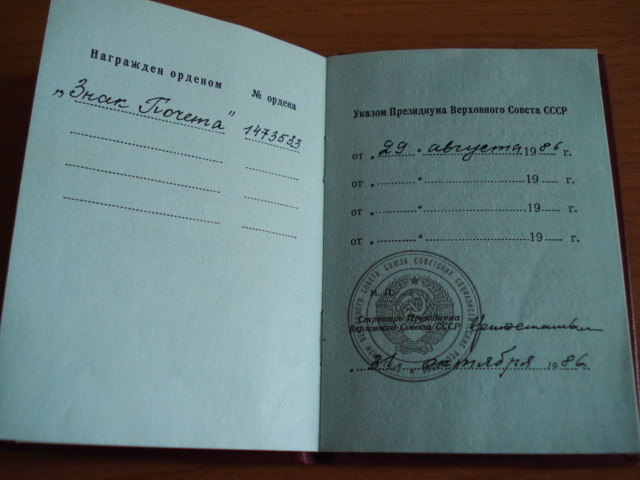 Награжден орденом
№ ордена
„Знак Почета" 1473523
Указом Президиума Верховного Совета СССР
от „29" августа 1986 г.
от „ " 19 г.
от „ " 19 г.
от „ " 19 г.
М. П.
Секретарь Президиума
Верховного Совета СССР
„21" октября 1986